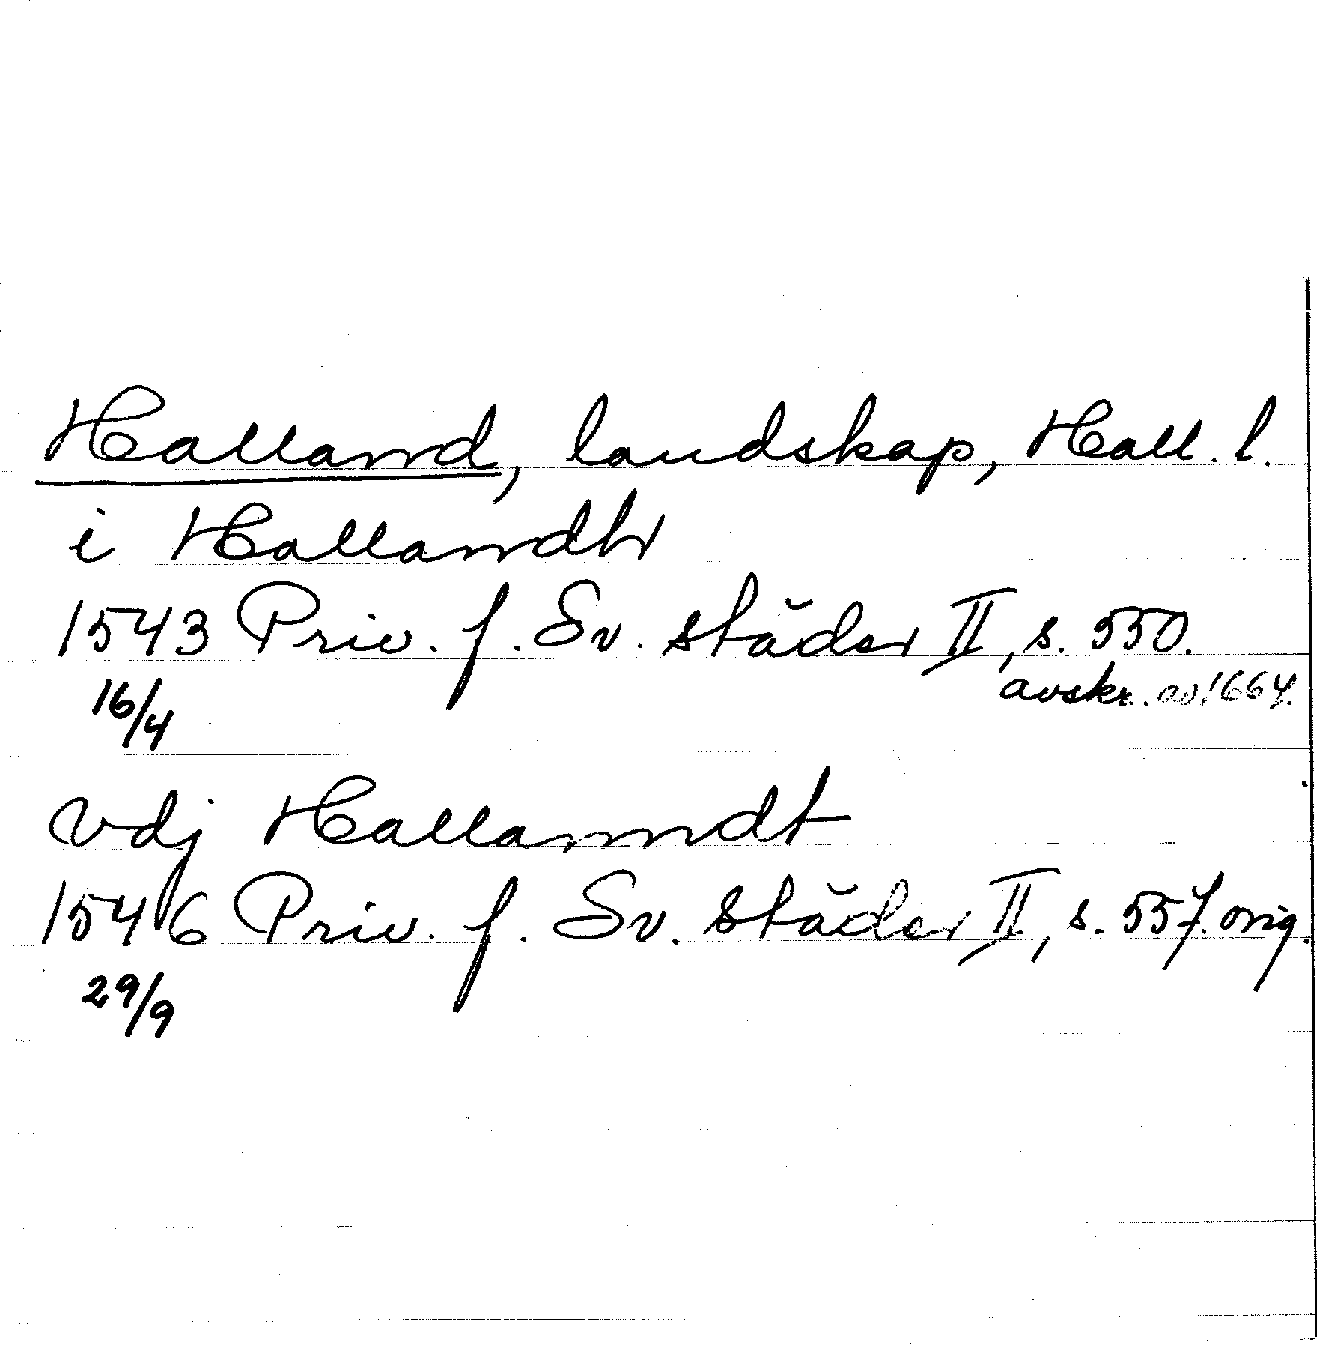 Halland, landskap, Hall. l.
i Hallandh
1543 Priv. f. Sv. städer II, s. 550.
16/4 avskr. av 1664.
vdj Hallanndt
1546 Priv. f. Sv. städer II, s. 557. orig.
29/9